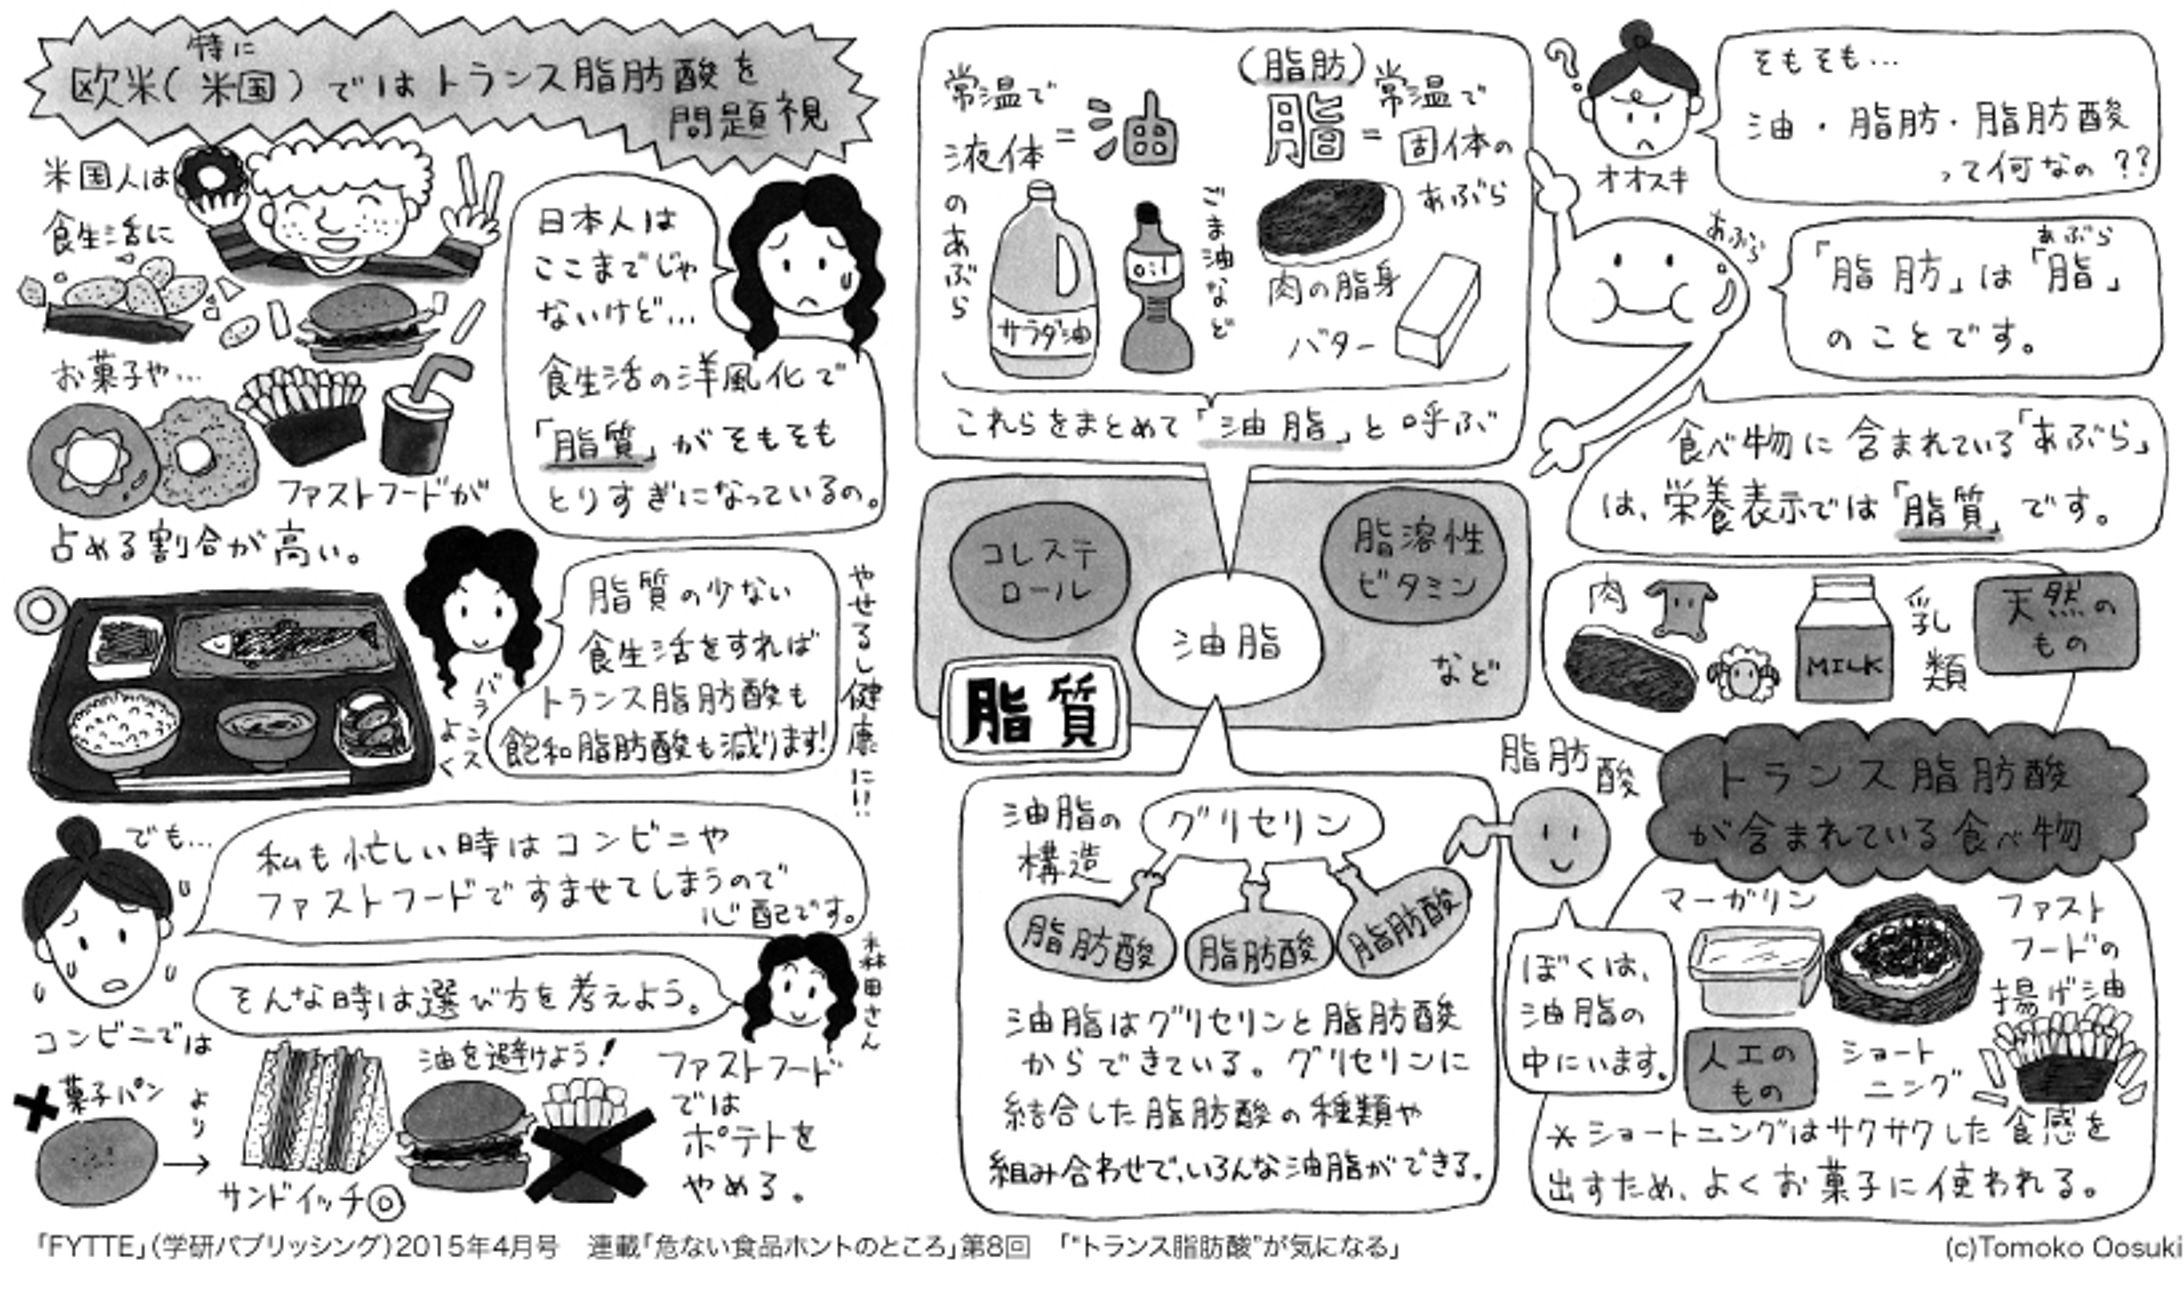 オオスキ
そもそも…
油・脂肪・脂肪酸
って何なの??
あぶら
「脂肪」は「脂」
あぶら
のことです。
食べ物に含まれている「あぶら」
は、栄養表示では「脂質」です。
常温で
液体
のあぶら
=油
サラダ油
oil
ごま油など
(脂肪)
脂=
常温で
固体の
あぶら
肉の脂身
バター
これらをまとめて「油脂」と呼ぶ
コレステ
ロール
脂溶性
ビタミン
油脂
など
脂質
油脂の
構造
グリセリン
脂肪酸
脂肪酸
脂肪酸
油脂はグリセリンと脂肪酸
からできている。グリセリンに
結合した脂肪酸の種類や
組み合わせで、いろんな油脂ができる。
脂肪酸
ぼくは、
油脂の
中にいます。
肉
MILK
乳類
天然の
もの
トランス脂肪酸
が含まれている食べ物
マーガリン
ファスト
フードの
揚げ油
人工の
もの
ショート
ニング
*ショートニングはサクサクした食感を
出すため、よくお菓子に使われる。
特に
欧米(米国)ではトランス脂肪酸を
問題視
米国人は
食生活に
お菓子や…
ファストフードが
占める割合が高い。
日本人は
ここまでじゃ
ないけど…
食生活の洋風化で
「脂質」がそもそも
とりすぎになっているの。
バランス
よく
脂質の少ない
食生活をすれば
トランス脂肪酸も
飽和脂肪酸も減ります!
やせるし健康に!!
でも…
私も忙しい時はコンビニや
ファストフードですませてしまうので
心配です。
森田さん
そんな時は選び方を考えよう。
コンビニでは
菓子パン
より
→
サンドイッチ◎
油を避けよう!
ファストフード
では
ポテトを
やめる。
「FYTTE」(学研パブリッシング)2015年4月号 連載「危ない食品ホントのところ」第8回 「“トランス脂肪酸”が気になる」
(c)Tomoko Oosuki